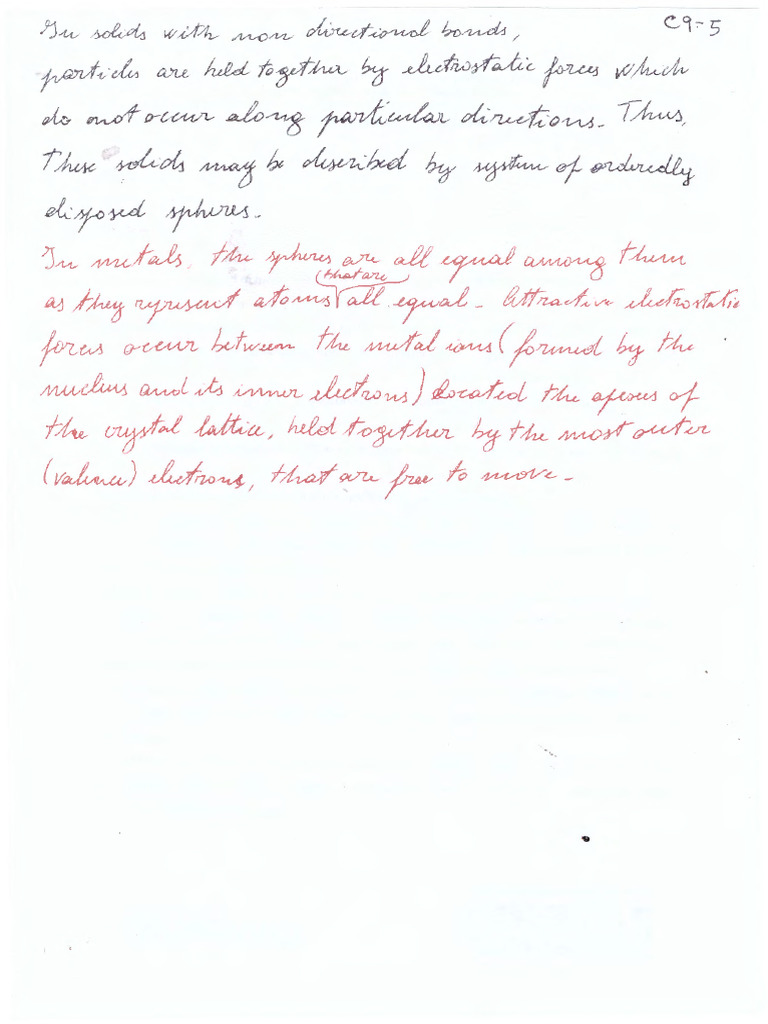 C9-5
In solids with non directional bonds,
particles are held together by electrostatic forces which
do not occur along particular directions. Thus,
these solids may be described by system of orderedly
disposed spheres.
In metals, the spheres are all equal among them
(that are)
as they represent atoms all equal. Attractive electrostatic
forces occur between the metal ions (formed by the
nucleus and its inner electrons) located the apexes of
the crystal lattice, held together by the most outer
(valence) electrons, that are free to move.